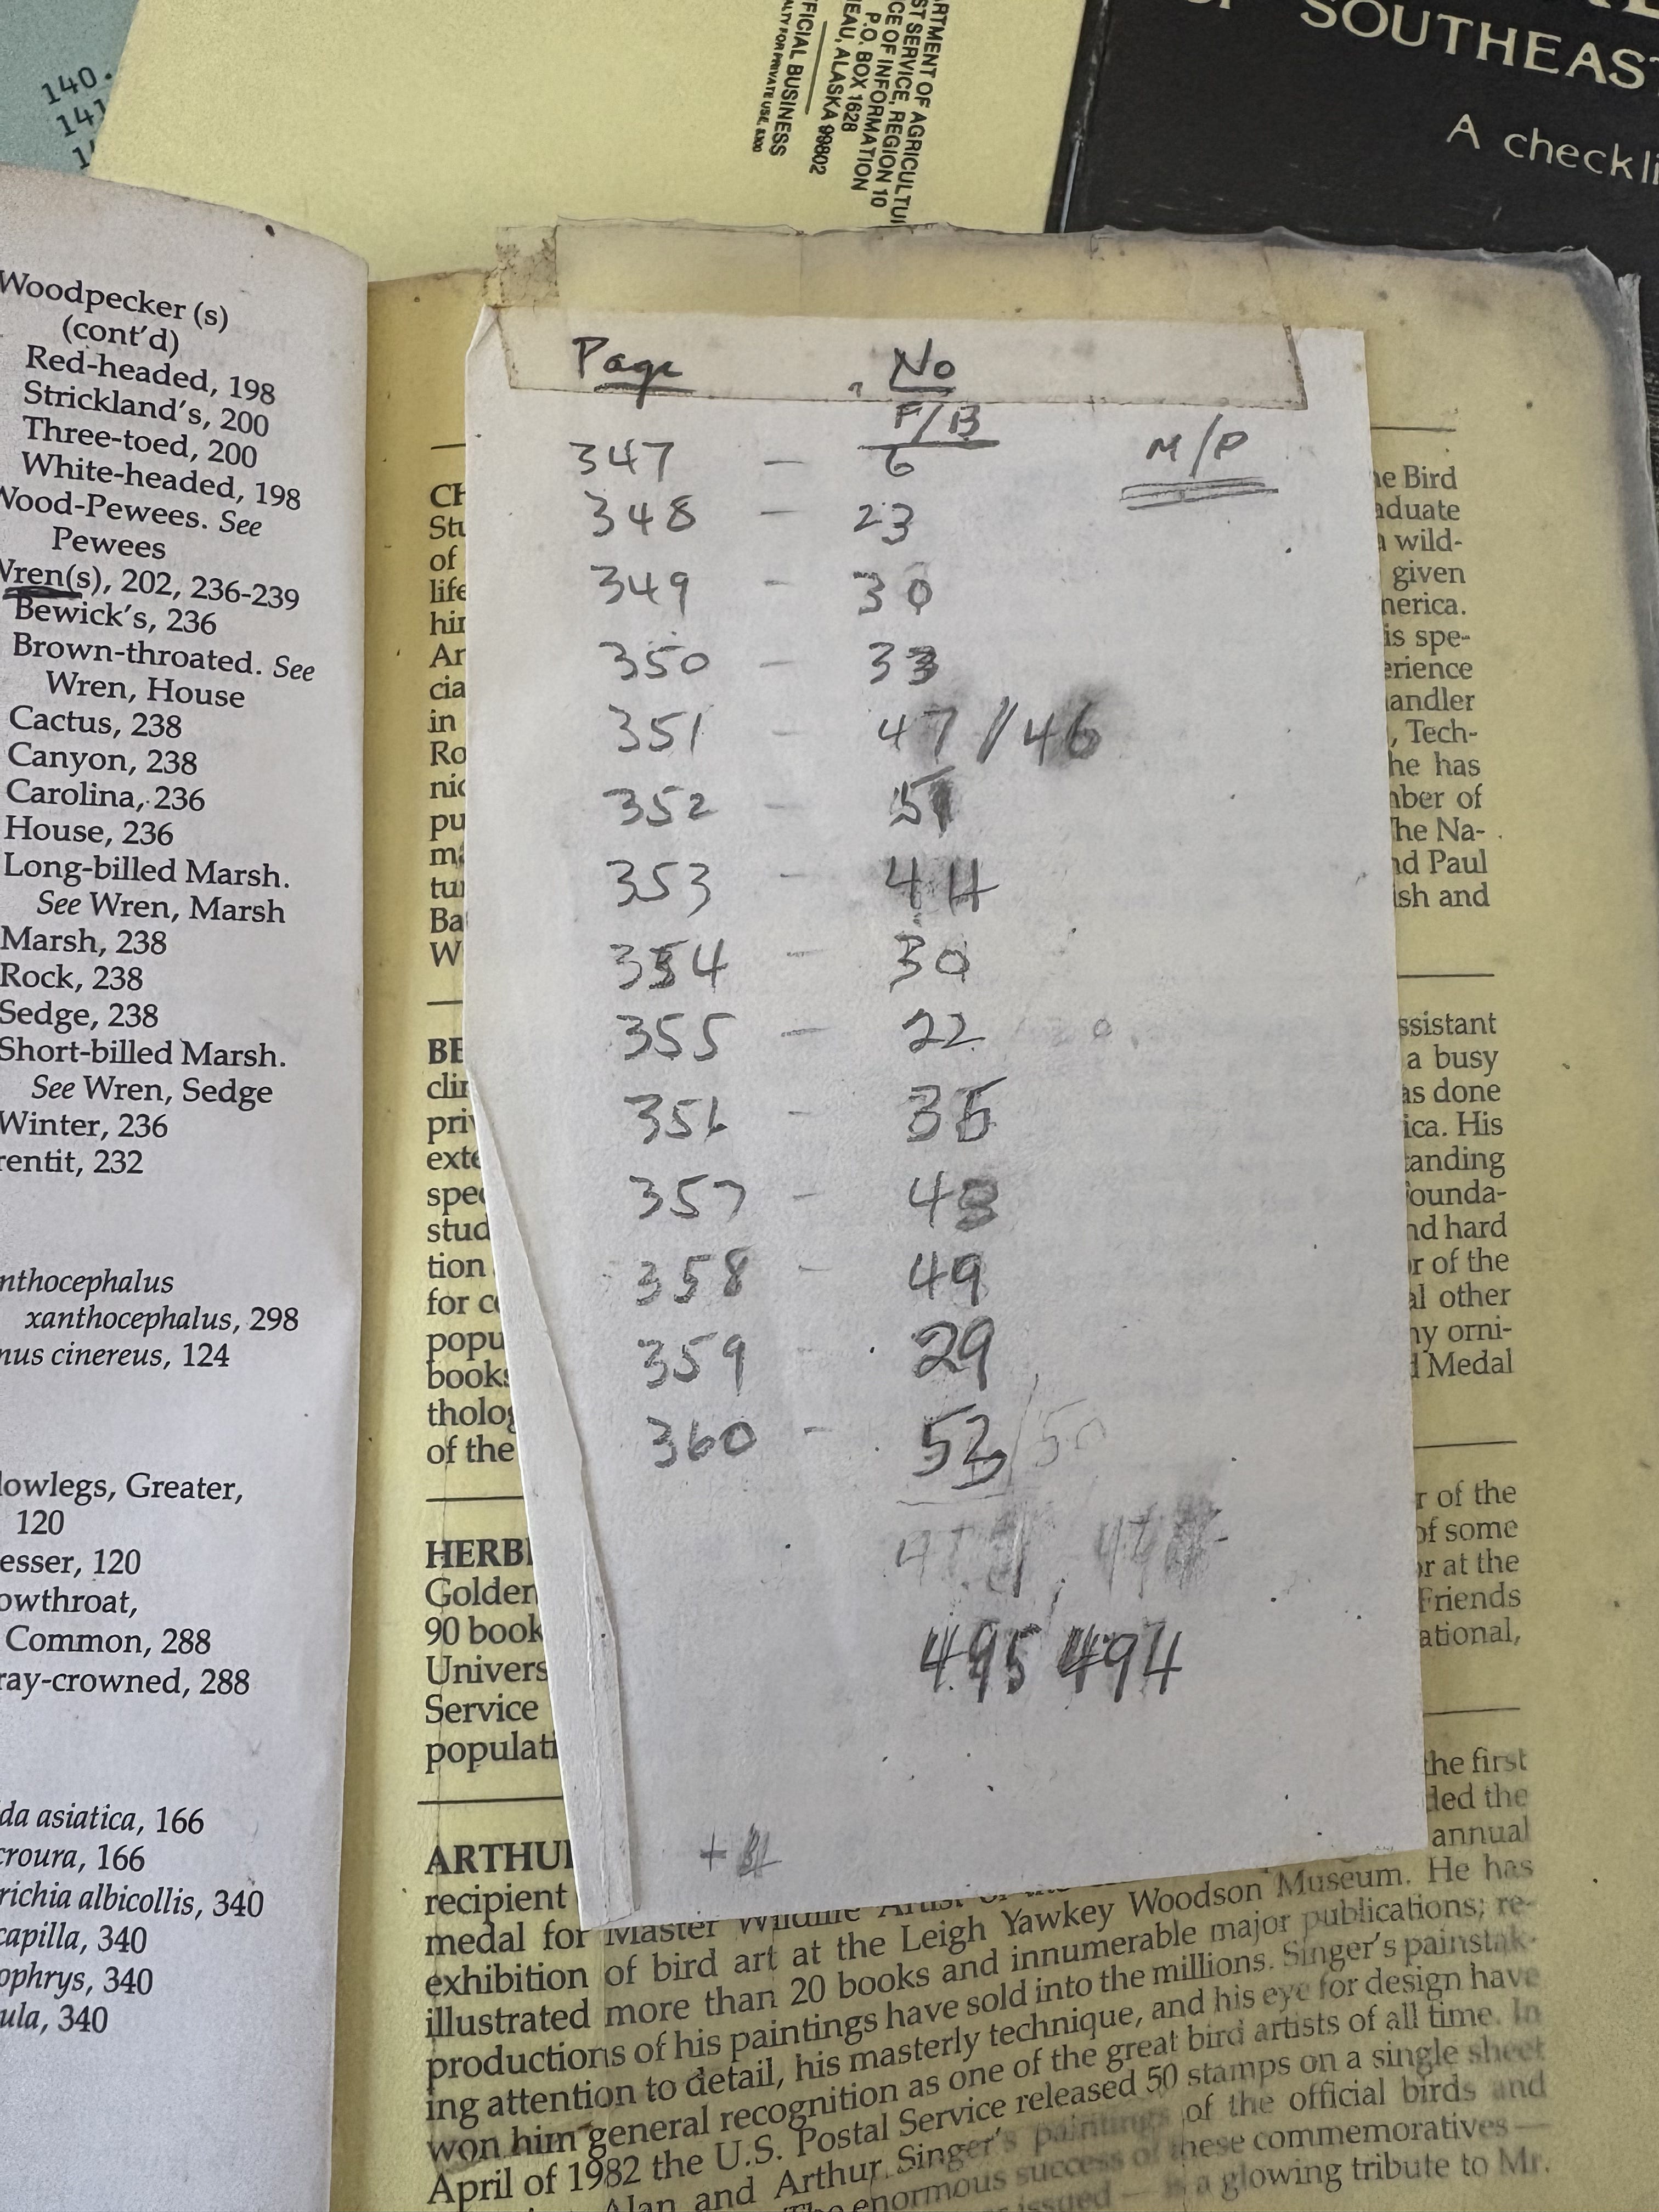 140.
141
RTMENT OF AGRICULTU
ST SERVICE, REGION 10
CE OF INFORMATION
P.O. BOX 1628
EAU, ALASKA 99802
FICIAL BUSINESS
ALTY FOR PRIVATE USE, $300
SOUTHEAST
A checkli
Woodpecker (s)
(cont'd)
Red-headed, 198
Strickland's, 200
Three-toed, 200
White-headed, 198
Wood-Pewees. See
Pewees
Wren(s), 202, 236-239
Bewick's, 236
Brown-throated. See
Wren, House
Cactus, 238
Canyon, 238
Carolina, 236
House, 236
Long-billed Marsh.
See Wren, Marsh
Marsh, 238
Rock, 238
Sedge, 238
Short-billed Marsh.
See Wren, Sedge
Winter, 236
rentit, 232
nthocephalus
xanthocephalus, 298
nus cinereus, 124
lowlegs, Greater,
120
esser, 120
owthroat,
Common, 288
ray-crowned, 288
da asiatica, 166
croura, 166
richia albicollis, 340
capilla, 340
ophrys, 340
ula, 340
Page No
F/B M/P
347 - 6
348 - 23
349 - 30
350 - 33
351 - 47 // 46
352 - 51
353 - 44
354 - 30
355 - 22
356 - 35
357 - 43
358 - 49
359 29
360 - 53/50
495 494
+ 4
CH
Stu
of
life
hir
Ar
cia
in
Ro
nic
pu
ma
tur
Ba
W
he Bird
aduate
a wild-
given
merica.
is spe-
erience
andler
, Tech-
he has
mber of
The Na-
nd Paul
ish and
BE
clin
priv
exte
spec
stud
tion
for co
popu
books
tholog
of the
ssistant
a busy
as done
ica. His
tanding
Founda-
nd hard
or of the
al other
ny orni-
d Medal
HERB
Golden
90 book
Univers
Service
populati
r of the
of some
or at the
Friends
ational,
ARTHUR
recipient
the first
ded the
annual
medal for Master Wildlife Artist of the
exhibition of bird art at the Leigh Yawkey Woodson Museum. He has
illustrated more than 20 books and innumerable major publications; re-
productions of his paintings have sold into the millions. Singer's painstak-
ing attention to detail, his masterly technique, and his eye for design have
won him general recognition as one of the great bird artists of all time. In
April of 1982 the U.S. Postal Service released 50 stamps on a single sheet
Alan and Arthur Singer's paintings of the official birds and
The enormous success of these commemoratives —
issued — is a glowing tribute to Mr.